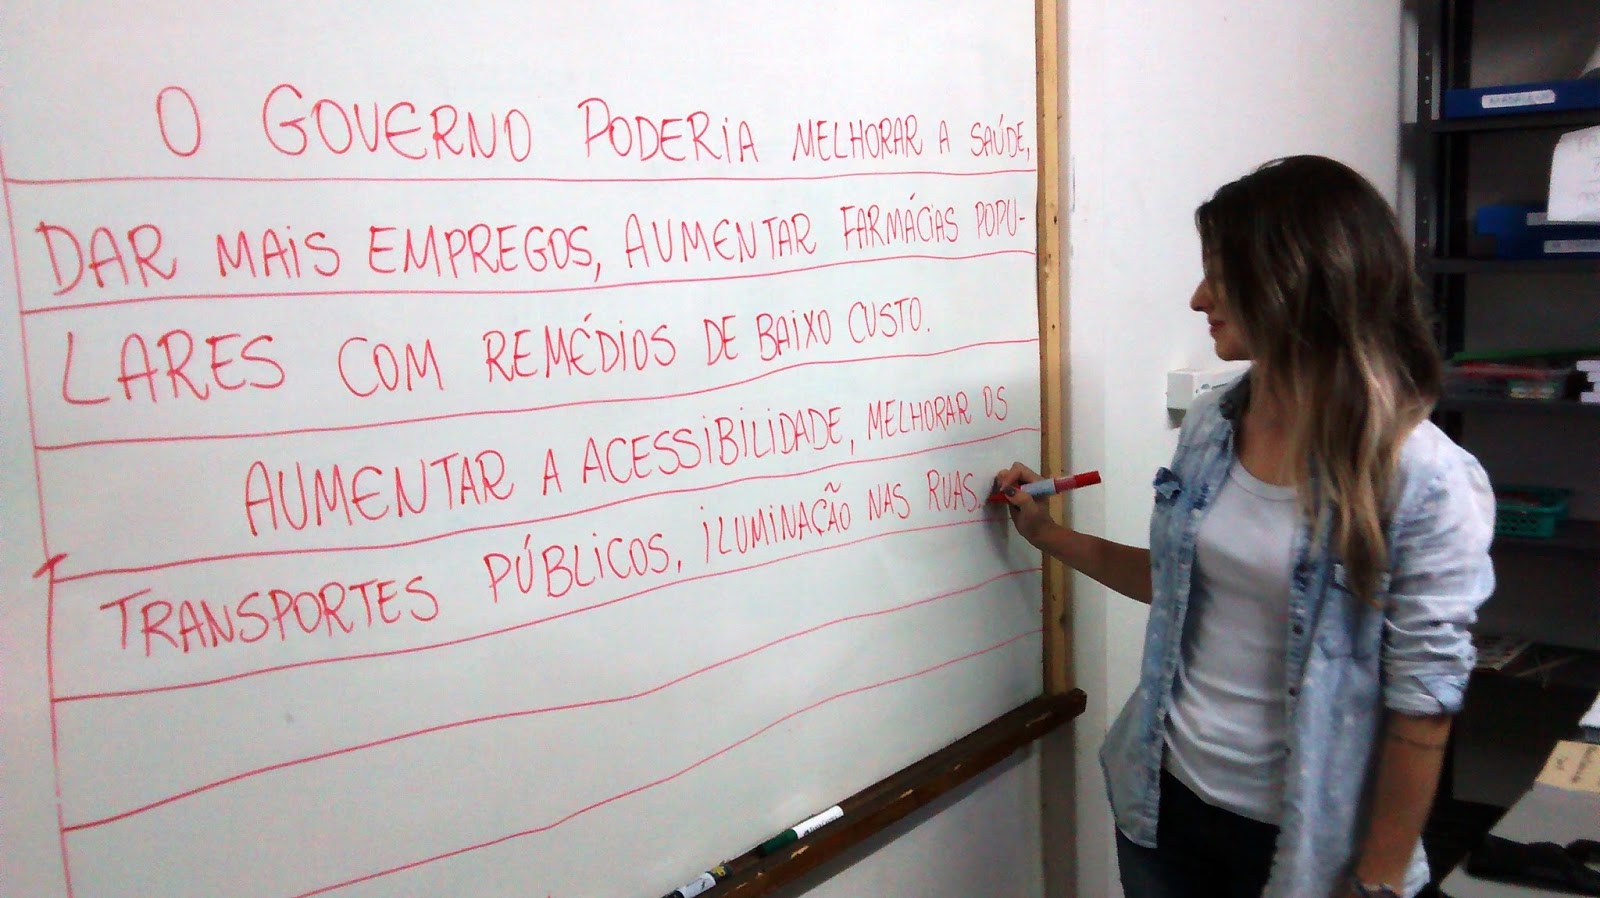 O GOVERNO PODERIA MELHORAR A SAÚDE,
DAR MAIS EMPREGOS, AUMENTAR FARMÁCIAS POPU-
LARES COM REMÉDIOS DE BAIXO CUSTO.
AUMENTAR A ACESSIBILIDADE, MELHORAR OS
TRANSPORTES PÚBLICOS, ILUMINAÇÃO NAS RUAS.